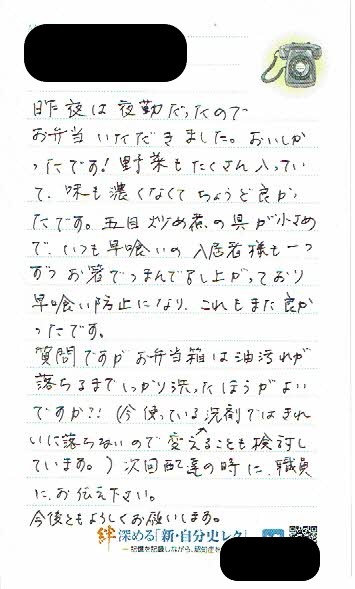 昨夜は夜勤だったので
お弁当いただきました。おいしか
ったです!野菜もたくさん入ってい
て、味も濃くなくてちょうど良か
たです。五目炒め煮の具が小さめ
で、いつも早喰いの入居者様も一つ
ずつお箸でつまんでめし上がっており
早喰い防止になり、これもまた良か
ったです。
質問ですがお弁当箱は油汚れが
落ちるまでしっかり洗ったほうがよい
ですか?!(今使っている洗剤ではきれ
いに落ちないので変えることも検討し
ています。)次回配達の時に、職員
に、お伝え下さい。
今後ともよろしくお願いします。
絆深める「新・自分史レク」
―記憶を記録しながら、認知症を